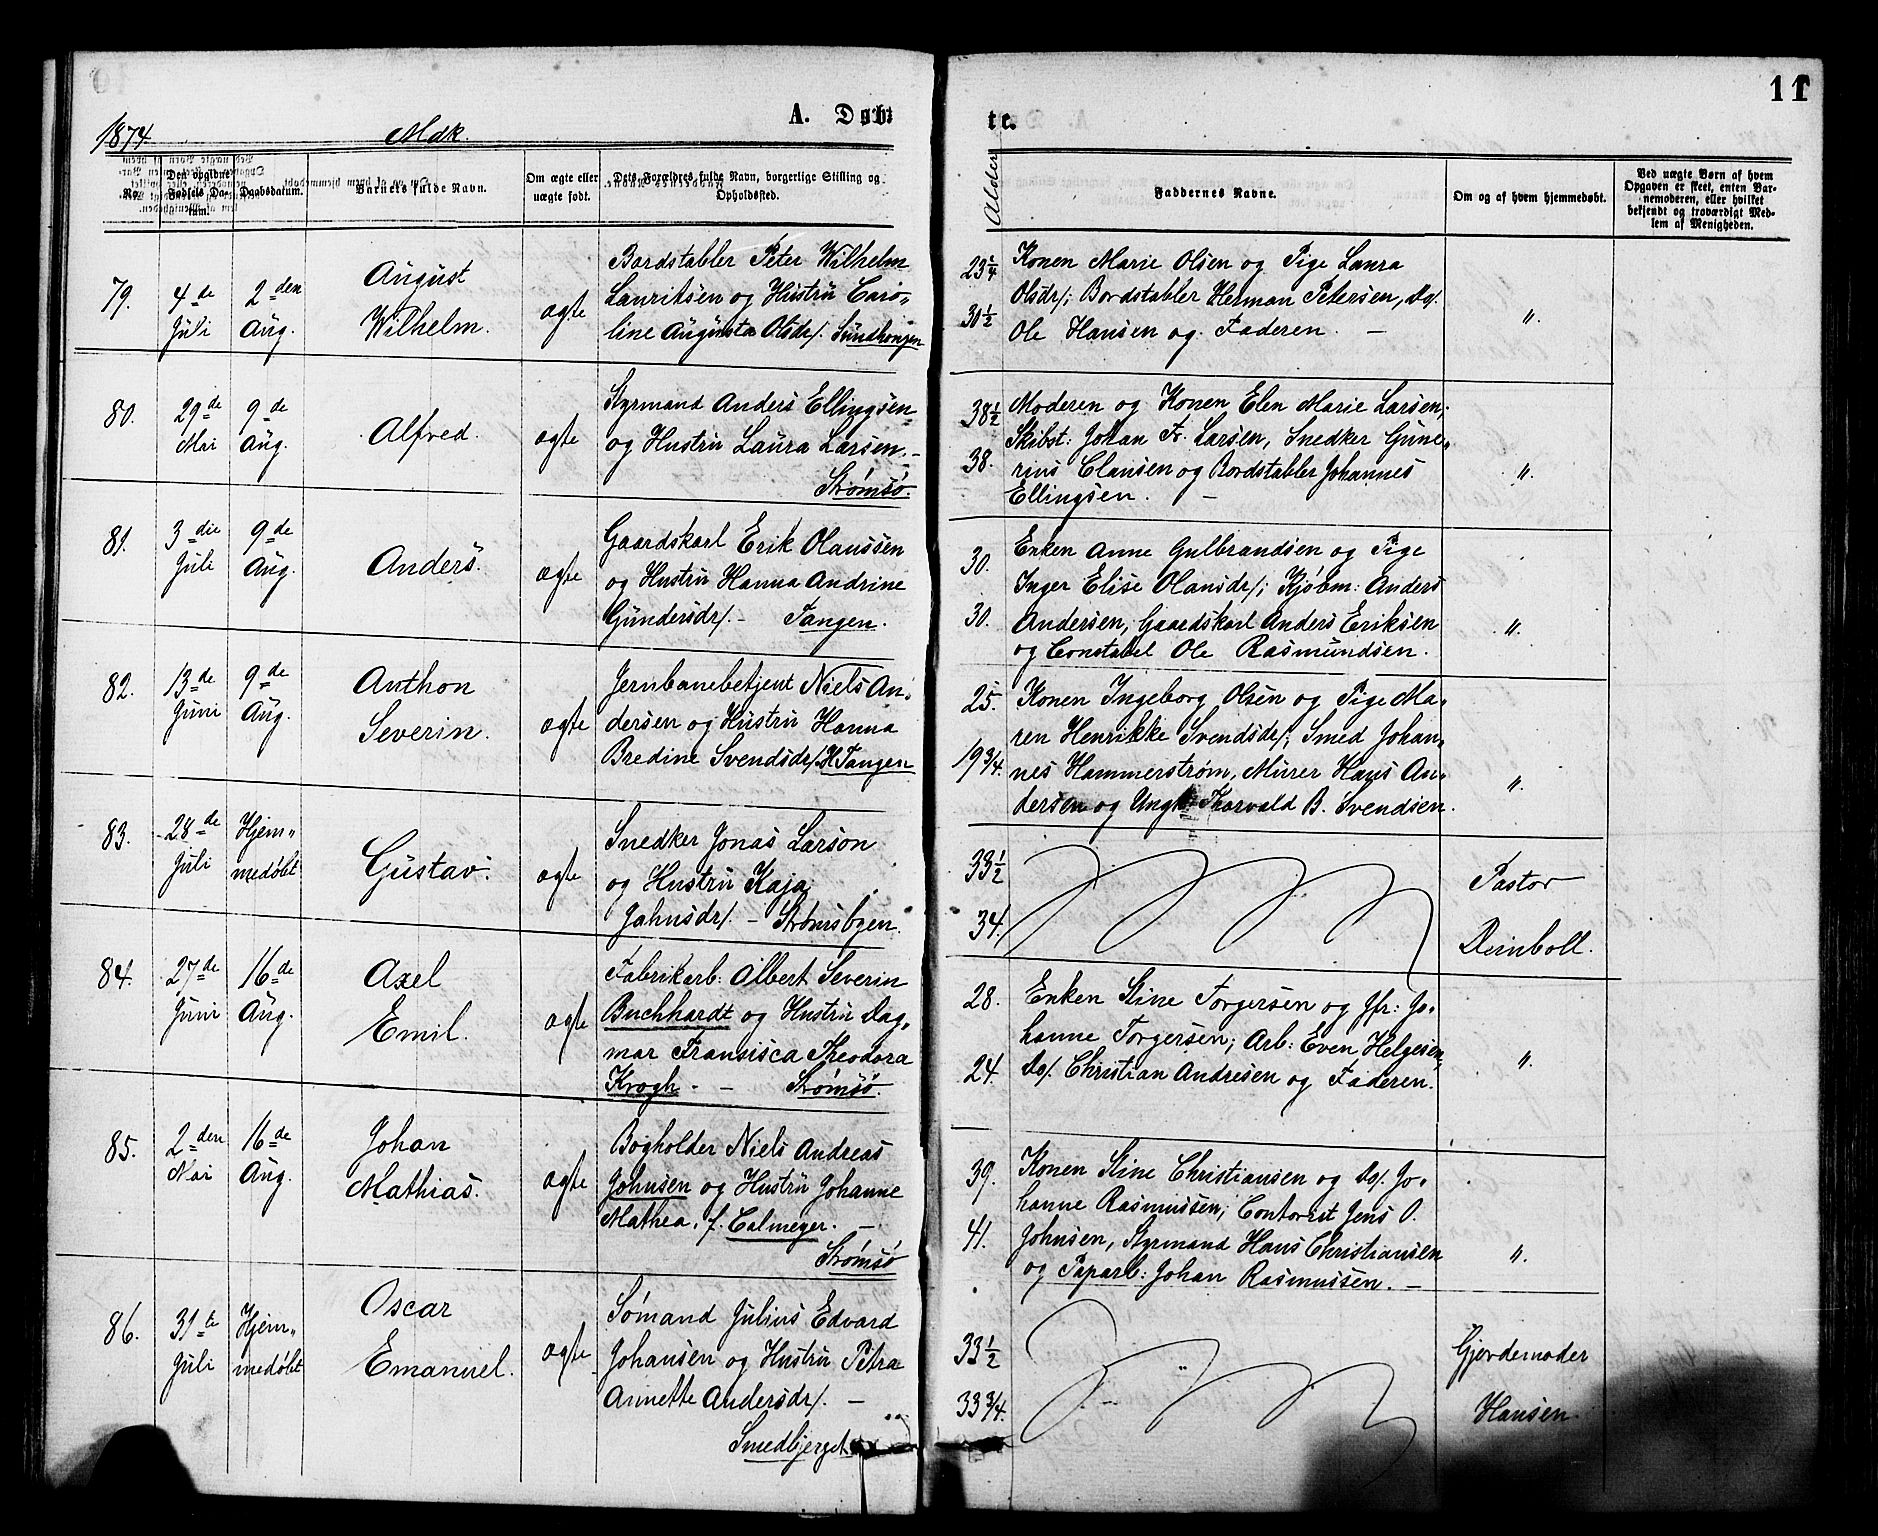 11
1874.
Mdk.
A. Døbte.
No.
Den opgivne Fødsels Datum.
Daabsdatum.
Barnets fulde Navn.
Om ægte eller uægte født.
Dets Forældres fulde Navn, borgerlige Stilling og Opholdssted.
Alder
Faddernes Navne.
Om og af hvem hjemmedøbt.
Ved uægte Børn af hvem
Opgaven er skeet, enten Bar-
nemoderen, eller hvilket
bekjendt og troværdigt Med-
lem af Menigheden.
79.
4de Juli
2den Aug.
August
Wilhelm.
ægte
Bordstabler Peter Wilhelm
Lauritsen og Hustru Caro-
line Augusta Olsdr/. Sundhougen
23 1/4
30 1/2
Konen Marie Olsen og Pige Laura
Olsdr/; Bordstabler Herman Petersen, do/.
Ole Hansen og Faderen. —
"
80.
29de Mai
9de Aug.
Alfred.
ægte
Styrmand Anders Ellingsen
og Hustru Laura Larsen. —
Strømsø.
38 1/2
38.
Moderen og Konen Elen Marie Larsen;
Skibst: Johan Fr. Larsen, Snedker Gune-
rius Clausen og Bordstabler Johannes
Ellingsen. —
"
81.
3die Juli
9de Aug.
Anders.
ægte
Gaardskarl Erik Olaussen
og Hustru Hanna Andrine
Gundersdr/. — Tangen.
30.
30.
Enken Anne Gulbrandsen og Pige
Inger Elise Olausdr/; Kjøbm: Anders
Andersen, Gaardskarl Anders Eriksen
og Constabel Ole Rasmundsen.
"
82.
13de Juni
9de Aug.
Anthon
Severin.
ægte
Jernbanebetjent Niels An-
dersen og Hustru Hanna
Bredine Svendsdr/. H Tangen
25.
19 3/4.
Konen Ingeborg Olsen og Pige Ma-
ren Henrikke Svendsdr/; Smed Johan-
nes Hammerstrøm, Murer Hans An-
dersen og Ungk. Thorvald B. Svendsen.
"
83.
28de Juli
Hjem-
medøbt
Gustav.
ægte
Snedker Jonas Larson
og Hustru Kaja
Jahnsdr/. — Strømsbyen.
33 1/2
34.
Pastor
Reinboll.
84.
27de Juni
16de Aug.
Axel
Emil.
ægte
Fabrikarb: Albert Severin
Buchhardt og Hustru Dag-
mar Fransisca Theodora
Krogh. — Strømsø.
28.
24.
Enken Stine Torgersen og Jfr: Jo-
hanne Torgersen; Arb: Even Helgesen,
do/. Christian Andresen og Faderen.
"
85.
2den Mai
16de Aug.
Johan
Mathias.
ægte
Bogholder Niels Andreas
Johnsen og Hustru Johanne
Mathea, f. Calmeyer. —
Strømsø
39.
41.
Konen Stine Christiansen og do/. Jo-
hanne Rasmussen; Contorist Jens O.
Johnsen, Styrmand Hans Christiansen
og Paparb: Johan Rasmussen. —
"
86.
31te Juli
Hjem-
medøbt
Oscar
Emanuel.
ægte
Sømand Julius Edvard
Johansen og Hustru Petra
Annette Andersdr/. —
Smedbjerget
33 1/2
33 3/4.
Gjordemoder
Hansen.